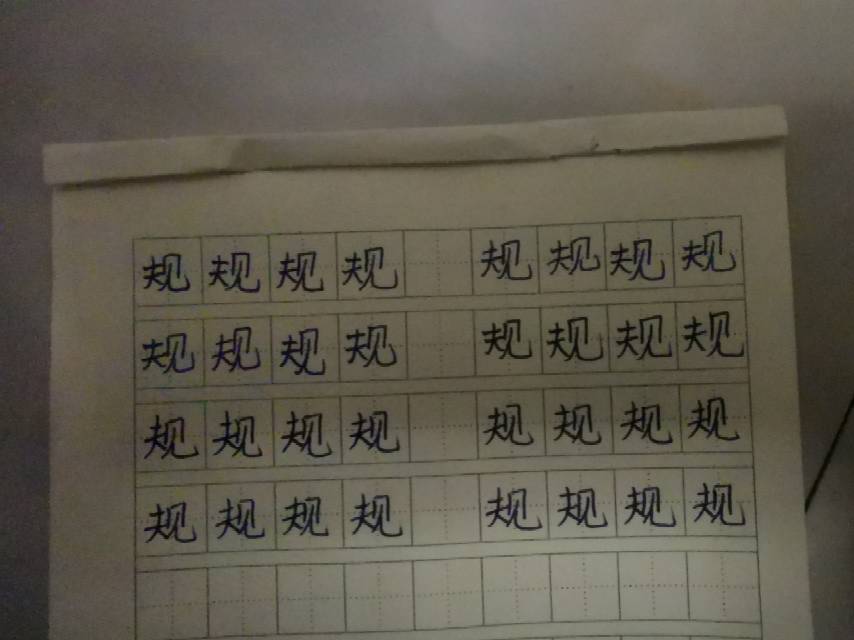 规规规规 规规规规
规规规规 规规规规
规规规规 规规规规
规规规规 规规规规